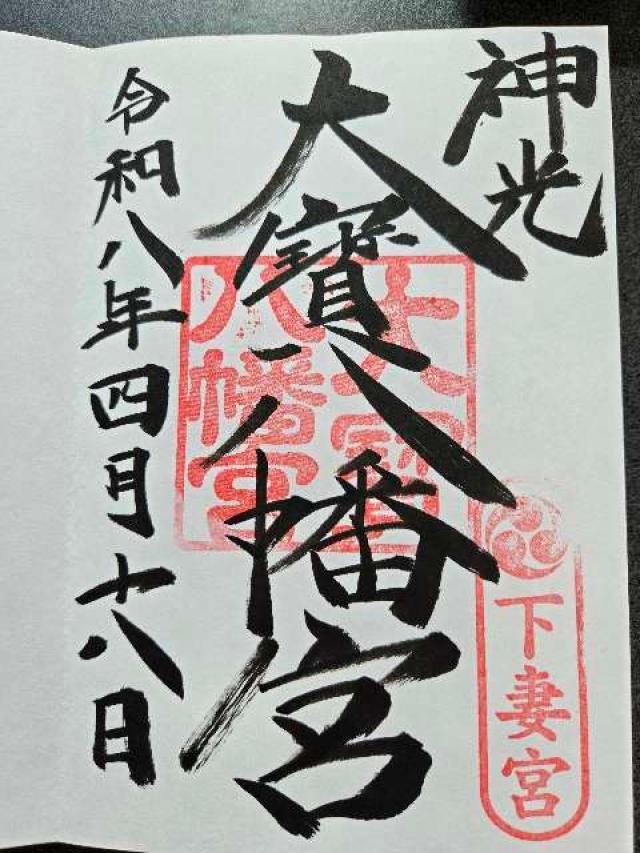 神光
大寳八幡宮
大寳
八幡宮
下妻宮
令和八年四月十八日